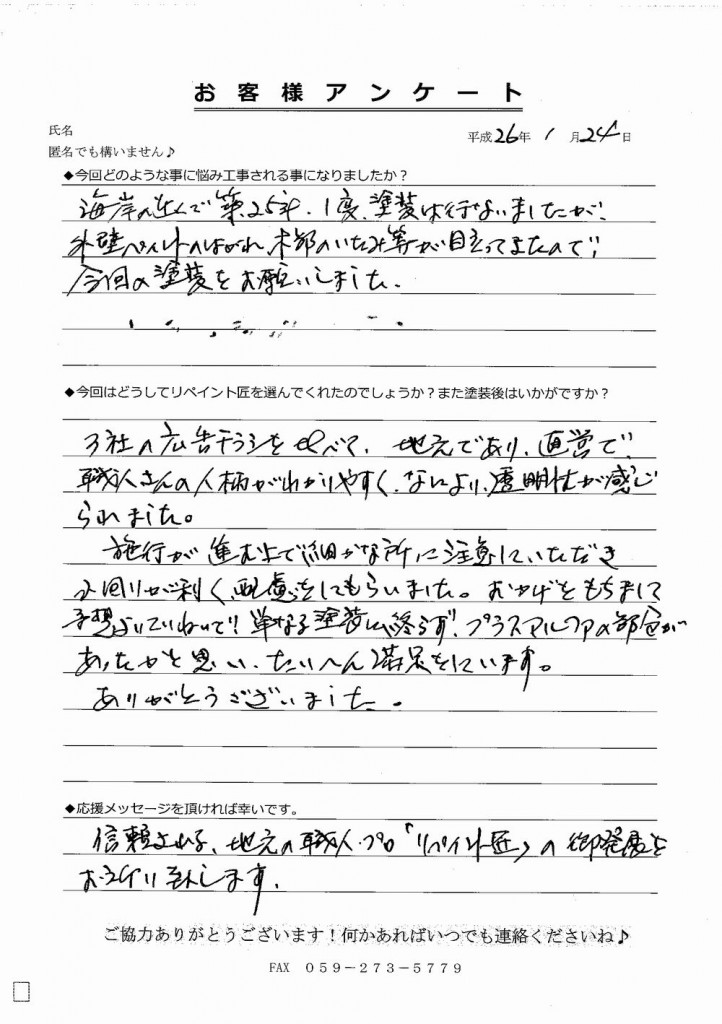 お客様アンケート
氏名
平成26年 1月24日
匿名でも構いません♪
◆今回どのような事に悩み工事される事になりましたか？
海岸の近くで築25年、1度、塗装は行ないましたが、
外壁ペイントのはがれ、木部のいたみ等が目立ってきたので、
今回の塗装をお願いしました。
◆今回はどうしてリペイント匠を選んでくれたのでしょうか？また塗装後はいかがですか？
3社の広告チラシを比べて、地元であり、直営で、
職人さんの人柄がわかりやすく、なにより、透明性が感じ
られました。
施行が進む上で細かな所に注意していただき
小回りが利く、配慮をしてもらいました。おかげをもちまして
予想よりていねいで、単なる塗装に終らず、プラスアルファの部分が
あったかと思い、たいへん満足をしています。
ありがとうございました。
◆応援メッセージを頂ければ幸いです。
信頼される、地元の職人・プロ「リペイント匠」の御発展を
お祈り致します。
ご協力ありがとうございます！何かあればいつでも連絡くださいね♪
FAX 059-273-5779